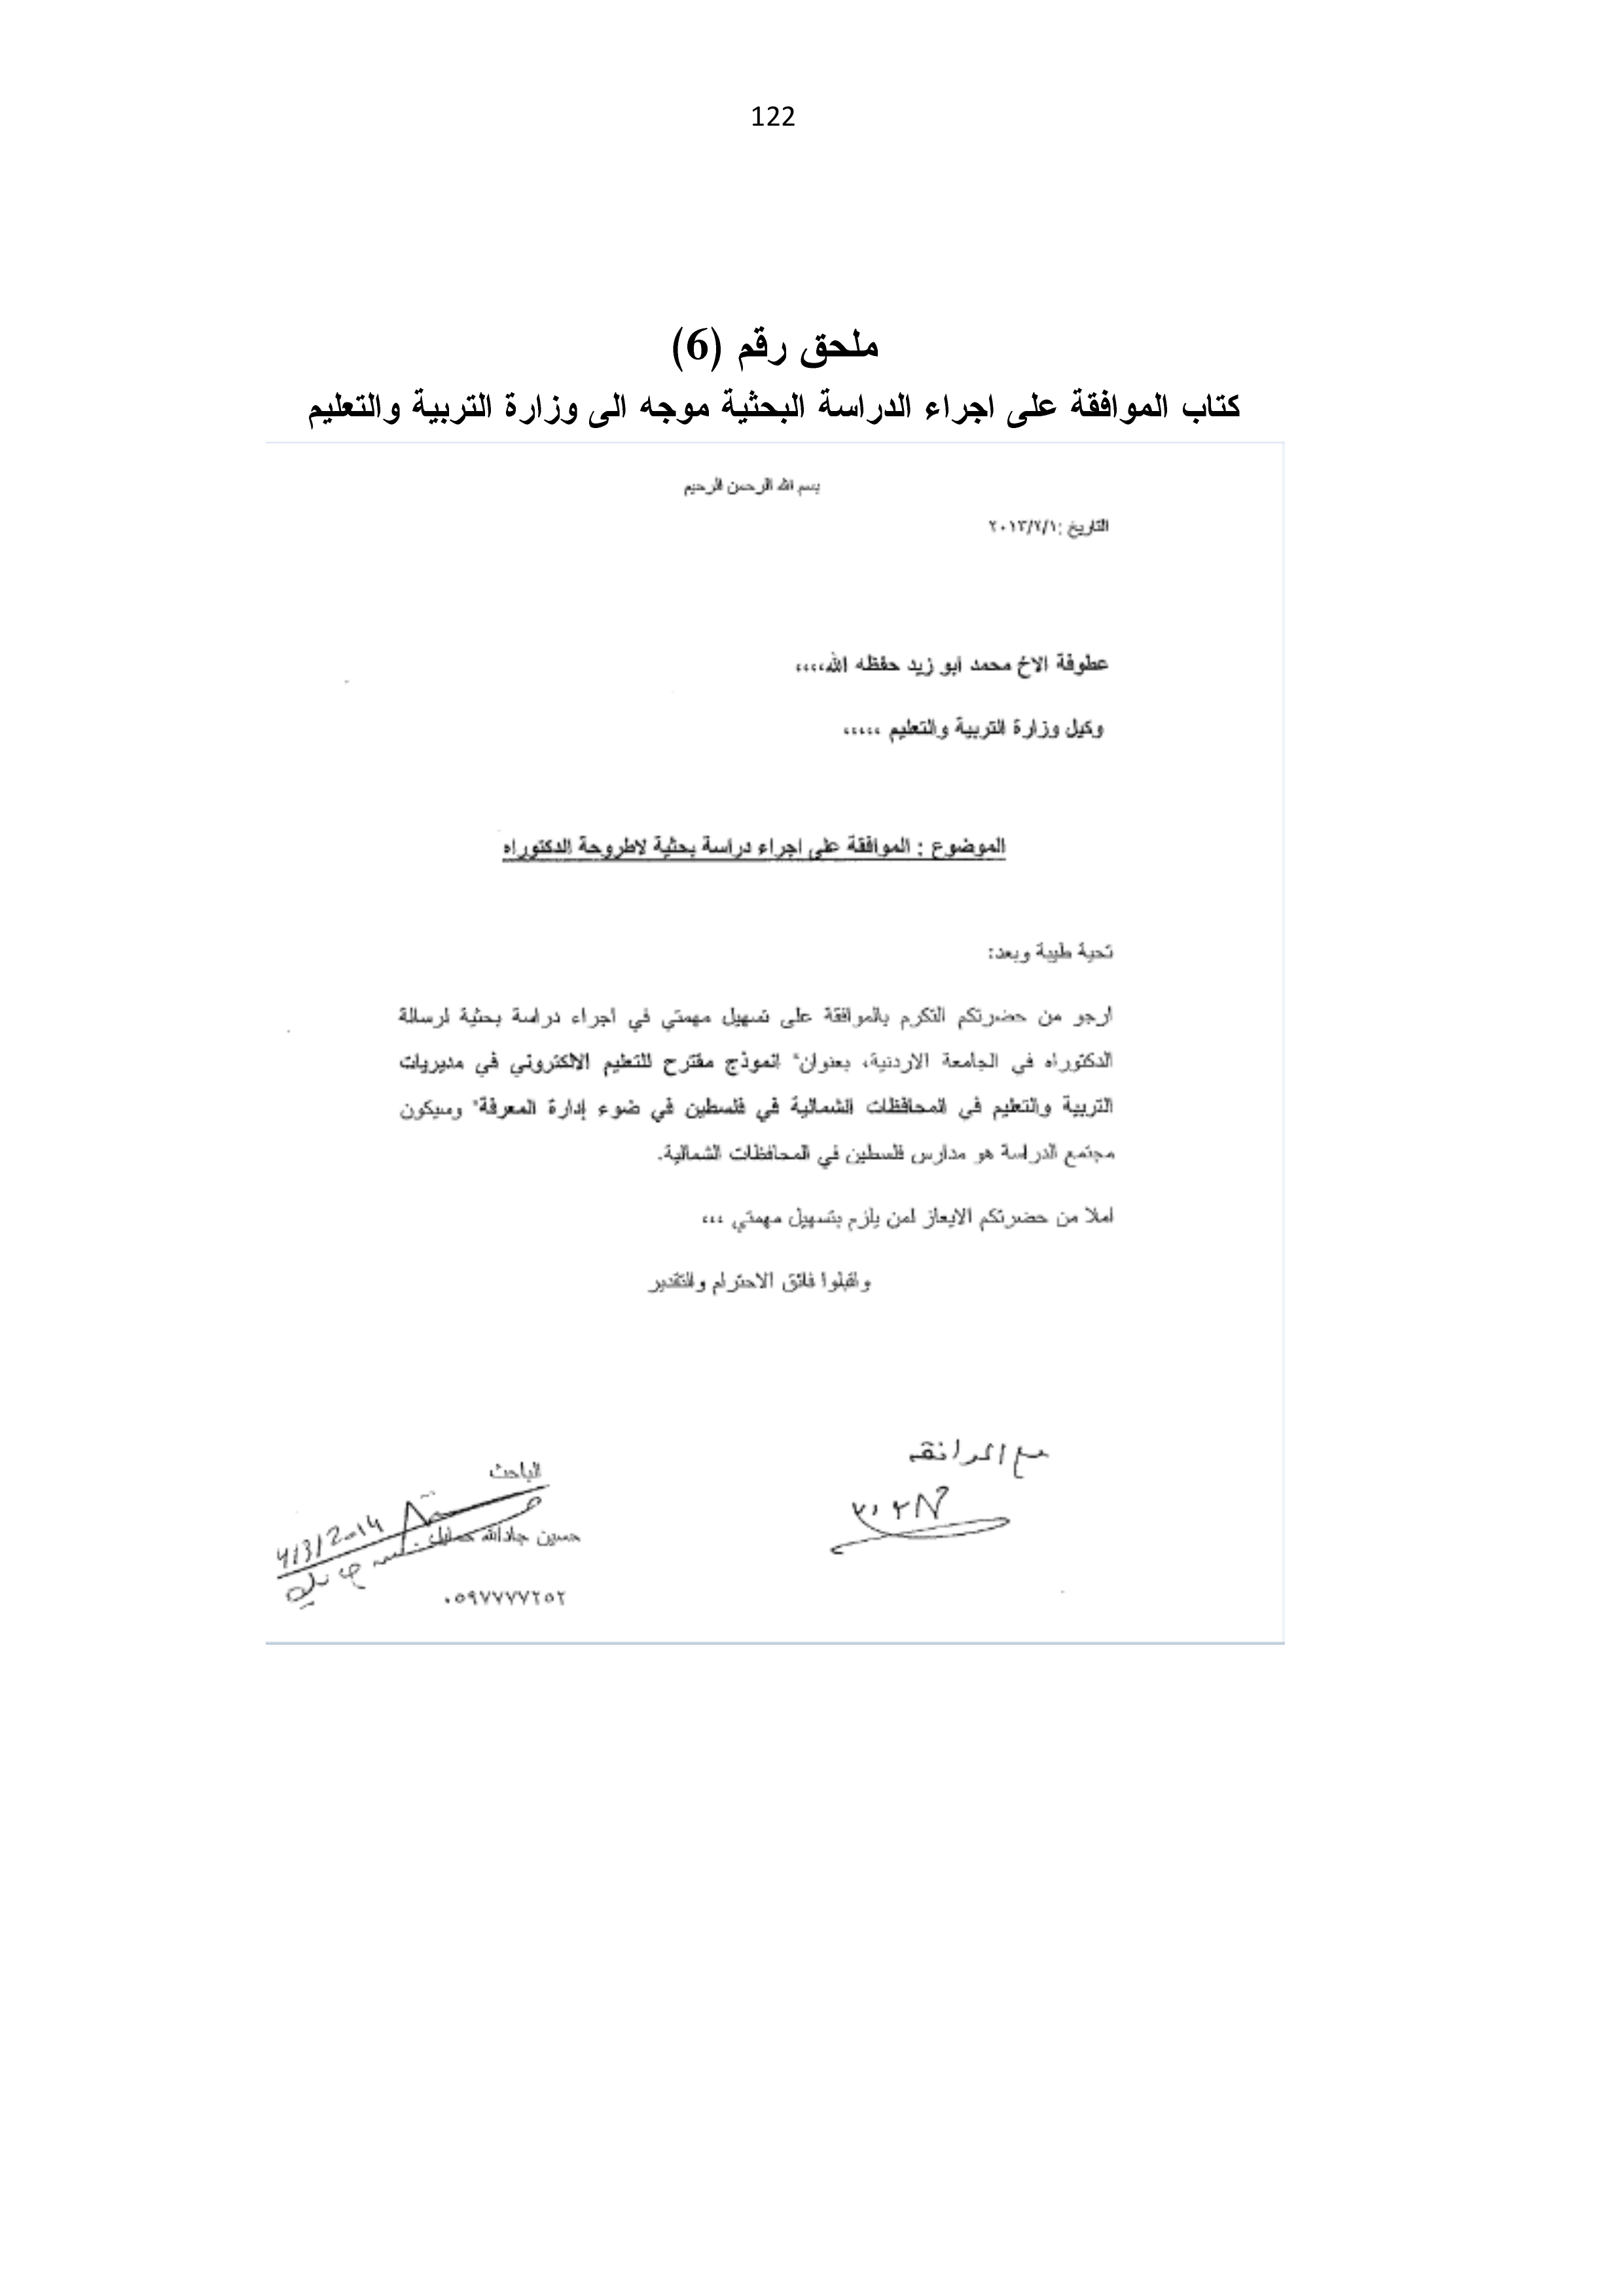 122
ملحق رقم (6)
كتاب الموافقة على اجراء الدراسة البحثية موجه الى وزارة التربية والتعليم
بسم الله الرحمن الرحيم
التاريخ :٢٠١٣/٢/١
عطوفة الاخ محمد ابو زيد حفظه الله،،،،
وكيل وزارة التربية والتعليم ،،،،،
الموضوع : الموافقة على اجراء دراسة بحثية لاطروحة الدكتوراه
تحية طيبة وبعد:
ارجو من حضرتكم التكرم بالموافقة على تسهيل مهمتي في اجراء دراسة بحثية لرسالة
الدكتوراه في الجامعة الاردنية، بعنوان" انموذج مقترح للتعليم الالكتروني في مديريات
التربية والتعليم في المحافظات الشمالية في فلسطين في ضوء إدارة المعرفة" وسيكون
مجتمع الدراسة هو مدارس فلسطين في المحافظات الشمالية.
املا من حضرتكم الايعاز لمن يلزم بتسهيل مهمتي ،،،
واقبلوا فائق الاحترام والتقدير
مع الموافقة
الباحث
4/3/2014
حسين جادالله حمايل
٠٥٩٧٧٧٧٢٥٢